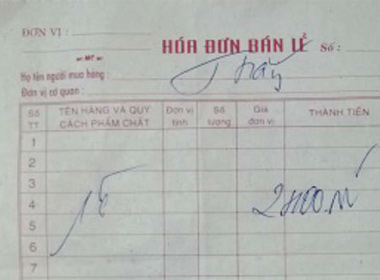 ĐƠN VỊ :
HÓA ĐƠN BÁN LẺ Số :
Họ tên người mua hàng :
Đơn vị cơ quan :
Số TT TÊN HÀNG VÀ QUY CÁCH PHẨM CHẤT Đơn vị tính Số lượng Giá đơn vị THÀNH TIỀN
1
2
3
4
5
6
7